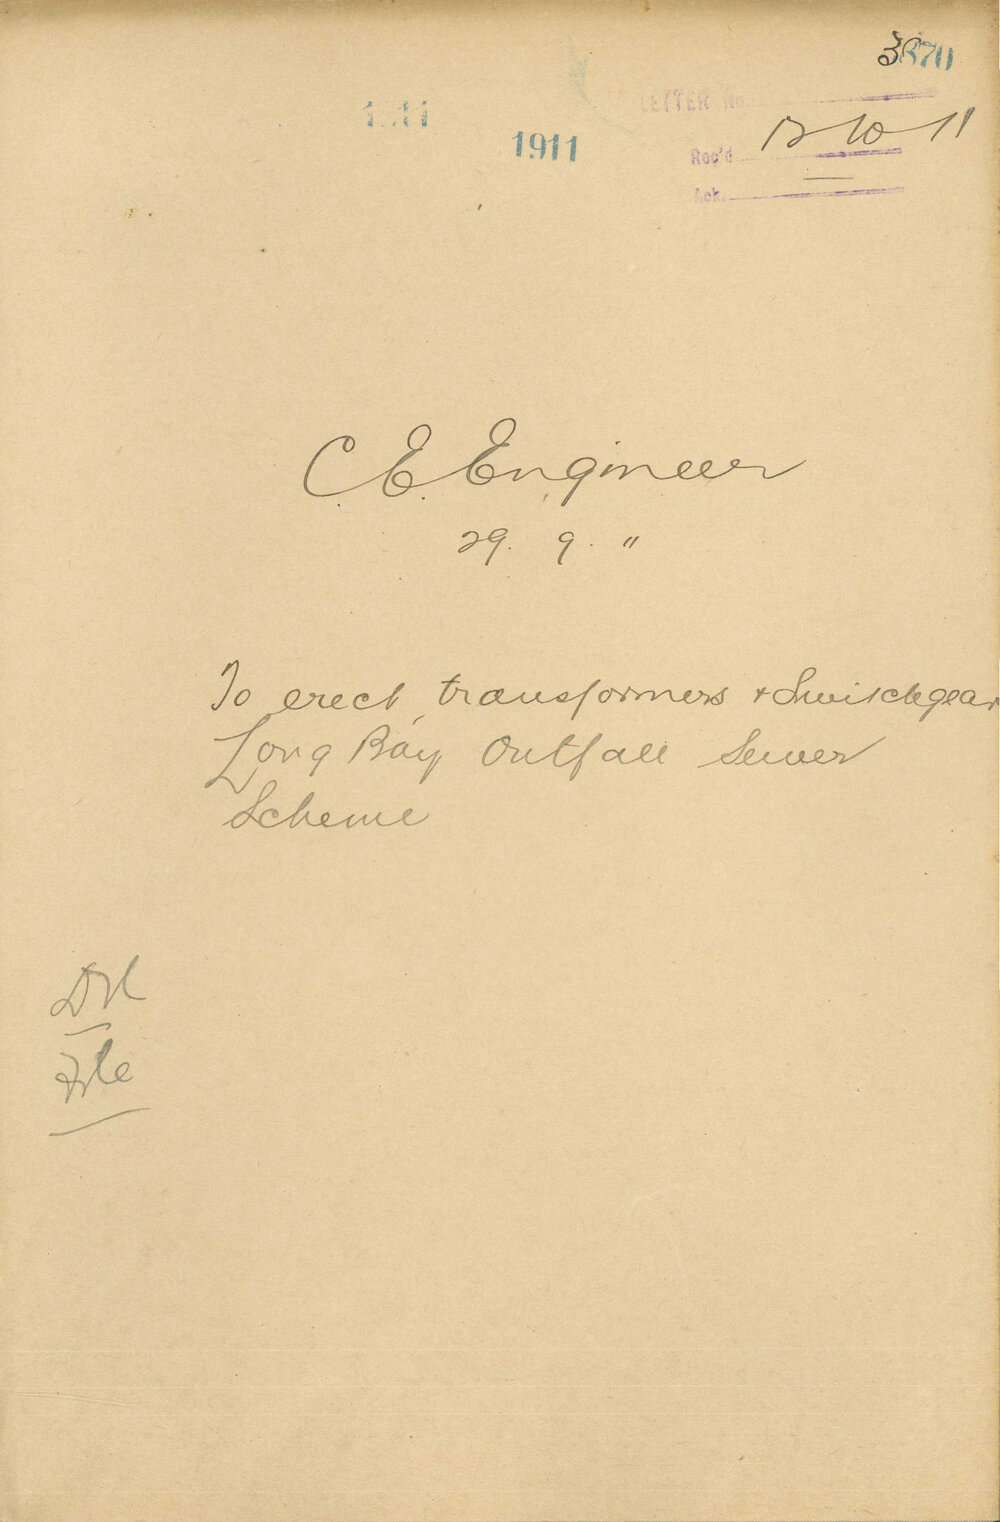 3870
1911
LETTER No.
1911
Rec'd 12 10 11
Ack.
C. E. Engineer
29. 9. 11
To erect transformers + Switchgear
Long Bay Outfall Sewer
Scheme
File